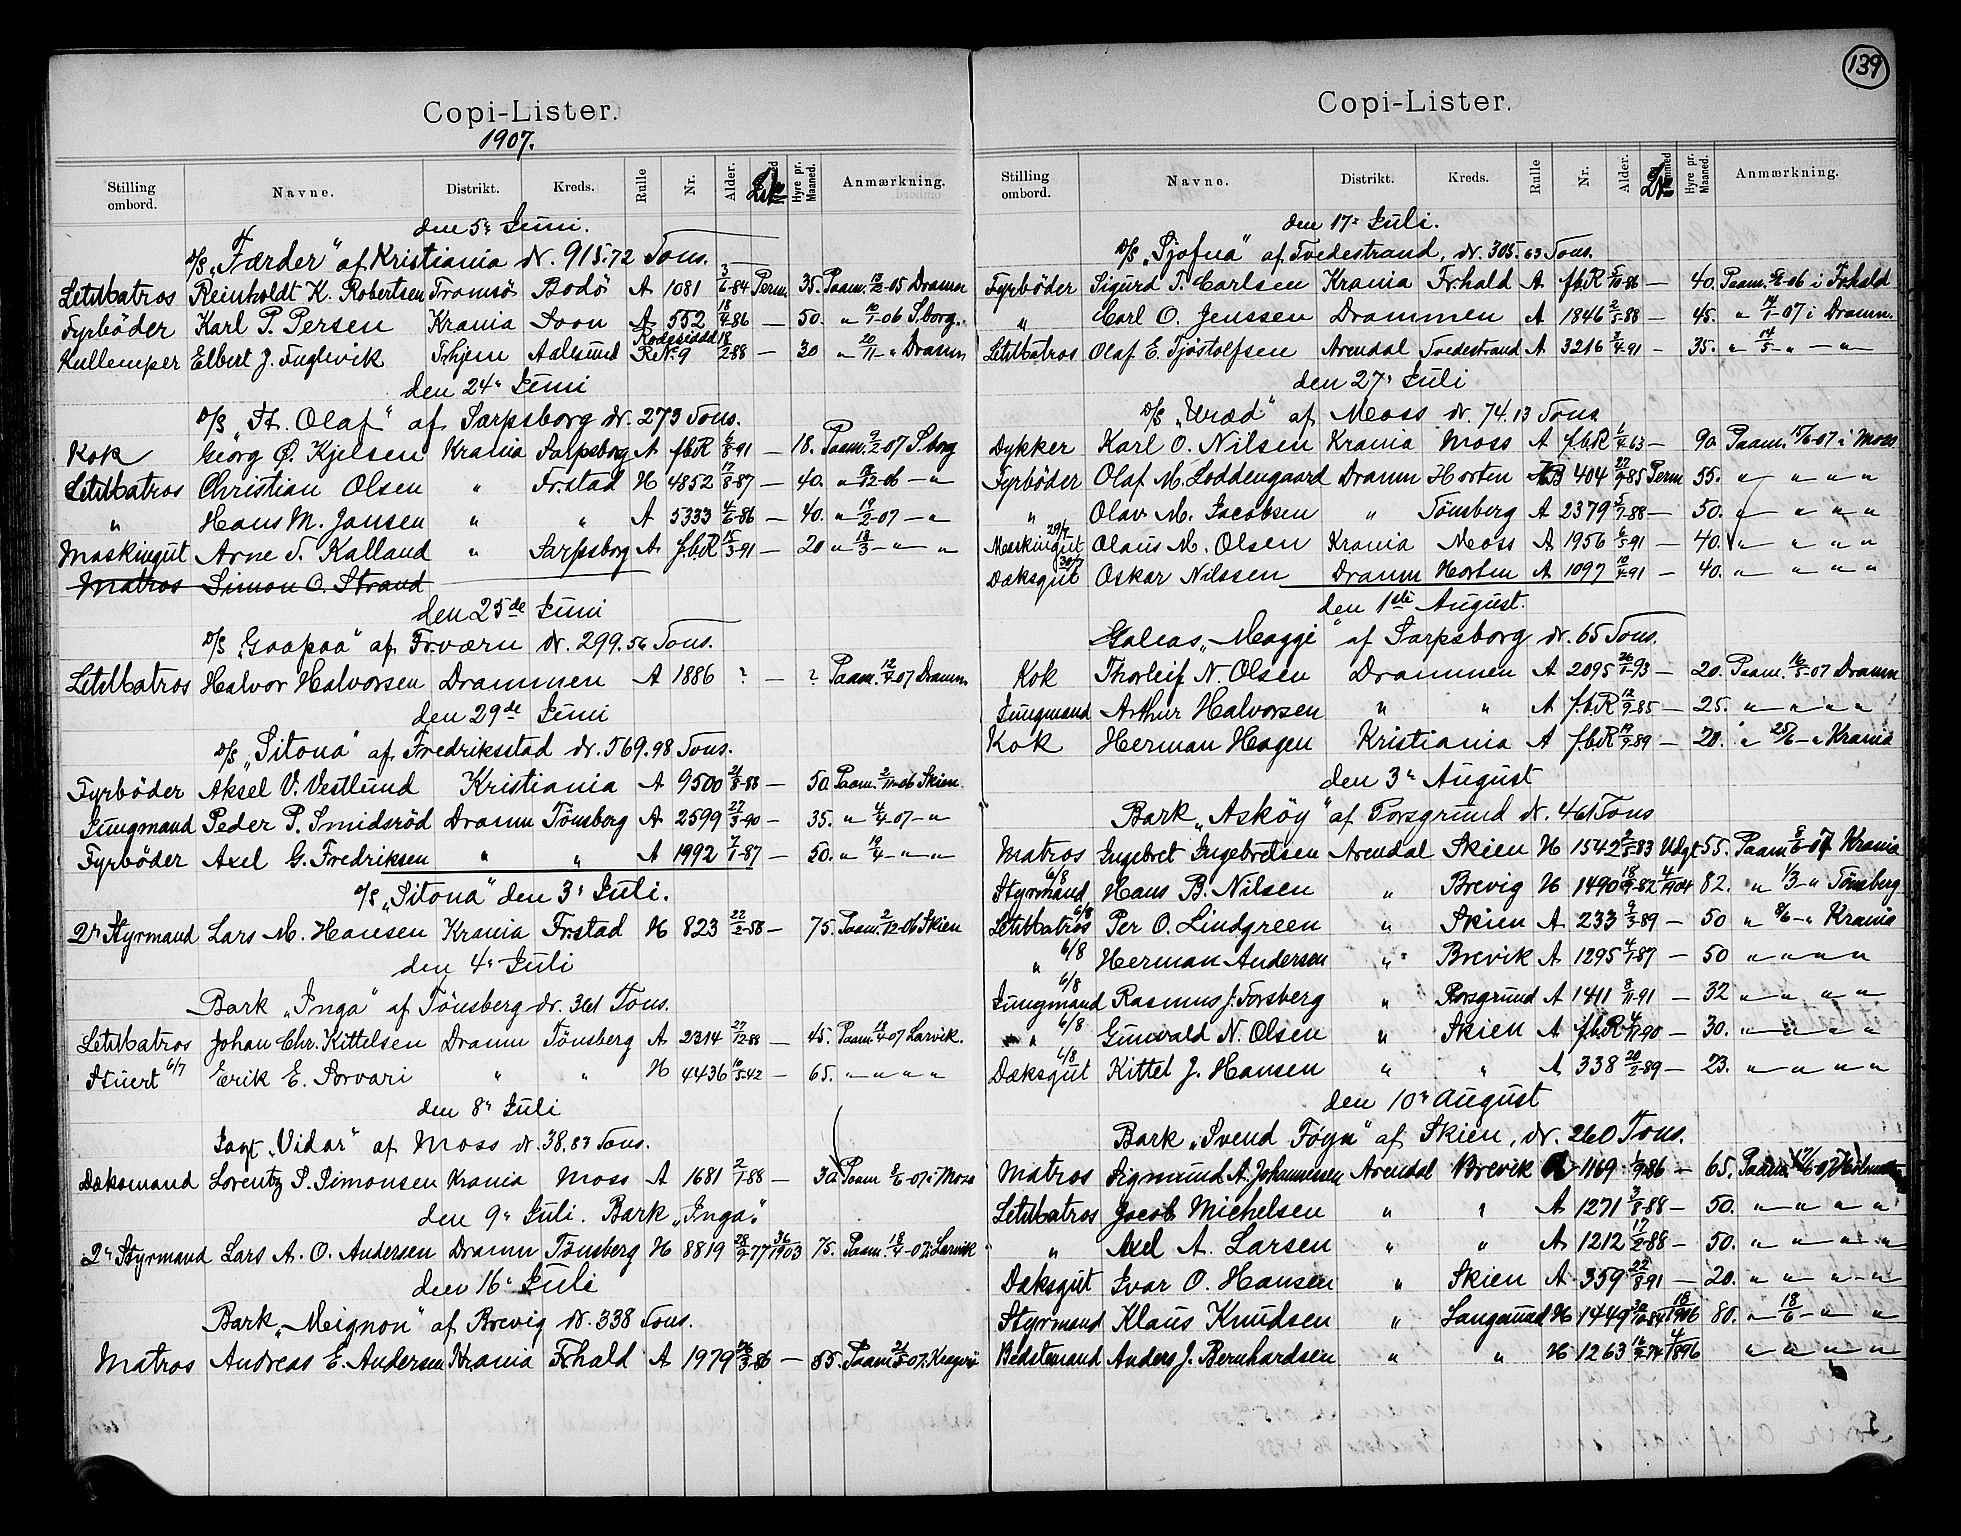 139
Copi-Lister.
1907.
Stilling ombord. Navne. Distrikt. Kreds. Rulle Nr. Alder. Hyre pr. Maaned. Anmærkning.
den 5 Juni.
D/S „Færder“ af Kristiania dr. 915.72 Tons.
LetMatros Reinholdt K. Robertsen Tromsö Bodö A 1081 3/6-84 Perm. 35. Paam. 12/12-05 Dramn
Fyrböder Karl P. Persen Krania Soon A 552 18/4-86 — 50. „ 10/1-06 S.borg.
Kullemper Elbert J. Fuglevik Trhjem Aalesund R.Nr. 9 18/2-88 — 30 „ 20/11 - „ Dramn
den 24 Juni
D/S „St. Olaf“ af Sarpsborg dr. 273 Tons.
Kok Georg Ø. Kjelsen Krania Sarpsborg A f.b.R 6/8-91 — 18. Paam. 9/2-07 S.borg
LetMatros Christian Olsen „ Fr.stad H 4852 17/8-87 — 40. „ 8/12-06 — „
„ Hans M. Jansen „ „ A 5333 4/6-86 — 40. „ 19/2-07 — „
Maskingut Arne T. Kalland „ Sarpsborg A f.b.R 15/3-91 — 20 „ 18/3 — „ — „
Matros Simon O. Strand
den 25de Juni
D/S „Gaapaa“ af Fr.værn dr. 299.56 Tons.
LetMatros Halvor Halvorsen Drammen A 1886 ? — ? Paam. 12/4-07 Dramn.
den 29de Juni
D/S „Sitona“ af Fredriksstad dr. 569.98 Tons.
Fyrböder Aksel V. Vestlund Kristiania A 9500 21/8-88 — 50 Paam. 2/11-06 Skien.
Jungmand Peder P. Smidsröd Dramn Tönsberg A 2599 27/3-90 — 35. „ 4/4-07 — „
Fyrböder Axel G. Fredriksen „ „ A 1992 7/1-87 — 50. „ 19/4 — „ — „
D/S „Sitona“ den 3 Juli.
2n Styrmand Lars M. Hansen Krania Frstad H 823 22/2-58 — 75. Paam. 2/12-06 Skien
den 4 Juli
Bark „Inga“ af Tönsberg dr. 361 Tons.
LetMatros Johan Chr. Kittelsen Dramn Tönsberg A 2314 27/12-88 — 45. Paam. 19/4-07 Larvik.
Stuert 6/7 Erik E. Sorvari „ „ H 4436 10/5-42 — 65. „ „ „ „
den 8 Juli
Jagt „Vidar“ af Moss dr. 38.83 Tons.
Dæksmand Lorentz S. Simonsen Krania Moss A 1681 2/1-88 — 30. Paam 8/6-07 i Moss
den 9 Juli. Bark „Inga“
2n Styrmand Lars A. O. Andersen Dramn Tönsberg H 8819 28/2-77 36/1903 75. Paam. 18/4-07 i Larvik
den 16 Juli
Bark „Meignon“ af Brevig dr. 338 Tons.
Matros Andreas E. Andersen Krania Frhald A 1979 26/3-86 — 55. Paam 21/5-07. Kragerö
Copi-Lister.
Stilling ombord. Navne. Distrikt. Kreds. Rulle Nr. Alder. Hyre pr. Maaned. Anmærkning.
den 17 Juli.
D/S „Sjofna“ af Tvedestrand, dr. 305.63 Tons.
Fyrböder Sigurd T. Carlsen Krania Fr.hald A f.b.R 5/10-86 — 40. Paam. -06 i Frhald
„ Carl O. Jenssen Drammen A 1846 2/5-88 — 45. „ 14/1-07 i Dramn.
LetMatros Olaf E. Tjöstolfsen Arendal Tvedestrand A 3216 3/4-91 — 35. „ 14/5 — „ — „
den 27 Juli
D/S „Uræd“ af Moss dr. 74.13 Tons
Dykker Karl O. Nilsen Krania Moss A f.b.R 1/4-63 — 90. Paam. 15/6-07 i Moss
Fyrböder Olaf M. Loddengaard Dramn Horten 404 22/9-85 Perm 55. „ „ „ „
„ Olav M. Jacobsen „ Tönsberg A 2379 5/7-88 — 50. „ „ „ „
Maskingut 29/7 Olaus M. Olsen Krania Moss A 1956 6/5-91 — 40. „ „ „ „
Dæksgut 30/7 Oskar Nilssen Dramn Horten A 1097 10/4-91 — 40. „ „ „ „
den 1ste August.
Galeas „Maggi“ af Sarpsborg dr. 65 Tons.
Kok Thorleif N. Olsen Drammen A 2095 26/1-93 — 20. Paam. 16/5-07 Dramn
Jungmand Arthur Halvorsen „ „ A f.b.R 12/9-85 — 25. „ „ „ „
Kok Herman Hagen Kristiania A f.b.R 19/9-89 — 20. „ 25/6 - „ Krania
den 3 August
Bark „Asköy“ af Porsgrund dr. 461 Tons
Matros Ingebret Ingebretsen Arendal Skien H 1542 2/5-83 Udgt 55. Paam 8/6-07 Krania
Styrmand 6/8 Hans B. Nilsen „ Brevig H 1490 18/9-82 4/1904 82. „ 1/3 - „ Tönsberg
LetMatros 6/8 Per O. Lindgreen „ Skien A 233 9/3-89 — 50 „ 8/6 - „ Krania
„ 6/8 Herman Andersen „ Brevik A 1295 4/7-87 — 50 „ „ „ „
Jungmand 6/8 Rasmus J. Forsberg „ Porsgrund A 1411 8/11-91 — 32 „ „ „ „
„ 6/8 Gunvald N. Olsen „ Skien A f.b.R 4/11-90 — 30. „ „ „ „
Dæksgut 6/8 Kittel J. Hansen „ „ A 338 20/2-89 — 23. „ „ „ „
den 10 August
Bark „Svend Föyn“ af Skien, dr. 260 Tons.
Matros Sigmund A. Johannessen Arendal Brevik A 1169 1/9-86 — 65. Paam. 17/6-07
LetMatros Jacob Michelsen „ „ A 1271 3/8-88 — 50. „ „ „ „
„ Axel A. Larsen „ „ A 1212 17/2-88 — 50. „ „ „ „
Dæksgut Ivar O. Hansen „ Skien A 359 22/8-91 — 20. „ „ „ „
Styrmand Klaus Knudsen „ Langesund H 1449 30/10-84 18/1906 80. „ 18/6 - „ „
Bedstemand Anders J. Bernhardsen „ „ H 1263 16/9-74 4/1896 „ „ „ „